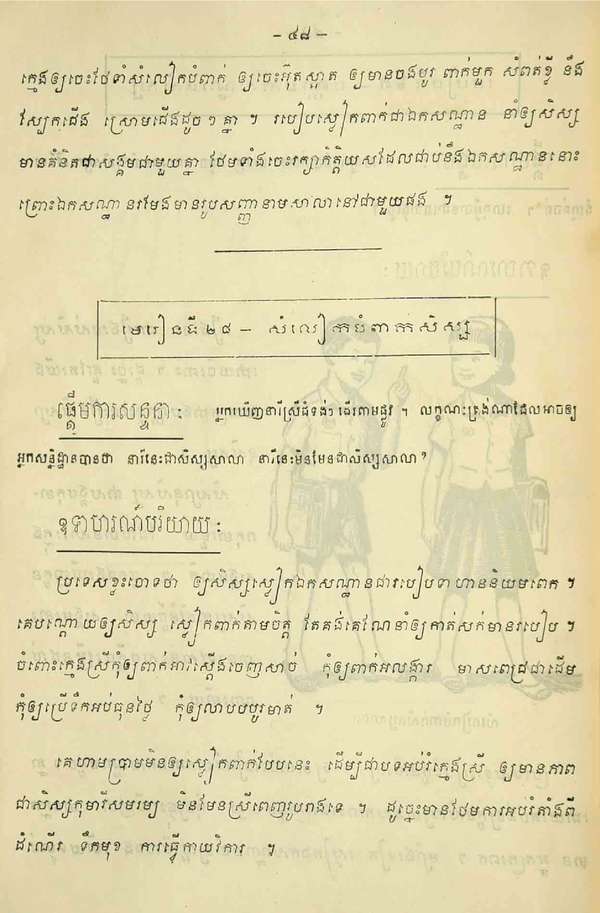 - ៤៨ -
ក្មេងឲ្យចេះថែទាំសំលៀកបំពាក់ ឲ្យចេះអ៊ុតស្អាត ឲ្យមានចងបូរ ពាក់មួក សំពត់ខ្លី នឹង
ស្បែកជើង ស្រោមជើងដូច ៗ គ្នា ។ របៀបស្លៀកពាក់ជាឯកសណ្ឋាន នាំឲ្យសិស្ស
មានគំនិតជាសង្គមជាមួយគ្នា ថែមទាំងចេះរក្សាកិត្តិយសដែលជាប់នឹងឯកសណ្ឋាននោះ
ព្រោះឯកសណ្ឋានរមែងមានរូបសញ្ញានាមសាលានៅជាមួយផង ។
មេរៀនទី២៨ - សំលៀកបំពាកសិស្ស
ផ្តើមការសន្ទនា : អ្នកឃើញនារីស្រីជំទង់ៗដើរតាមផ្លូវ ។ លក្ខណៈត្រង់ណាដែលអាចឲ្យ
អ្នកសន្និដ្ឋានបានថា នារីនេះជាសិស្សសាលា នារីនេះមិនមែនជាសិស្សសាលា ?
ឧទាហរណ៍បរិយាយ :
ប្រទេសខ្លះចោទថា ឲ្យសិស្សស្លៀកឯកសណ្ឋានជារបៀបទាហាននិយមពេក ។
គេបណ្តោយឲ្យសិស្ស ស្លៀកពាក់តាមចិត្ត តែគង់គេណែនាំឲ្យកាត់សក់មានរបៀប ។
ចំពោះក្មេងស្រីកុំឲ្យពាក់អាវស្តើងចេញសាច់ កុំឲ្យពាក់អលង្ការ មាសពេជ្រជាដើម
កុំឲ្យប្រើទឹកអប់ធុនថ្លៃ កុំឲ្យលាបបបូរមាត់ ។
គេហាមប្រាមមិនឲ្យស្លៀកពាក់បែបនេះ ដើម្បីជាបទអប់រំក្មេងស្រី ឲ្យមានភាព
ជាសិស្សកុមារីសមរម្យ មិនមែនស្រីពេញរូបរាងទេ ។ ដូច្នេះមានថែមការអប់រំតាំងពី
ដំណើរ ទឹកមុខ ការធ្វើកាយវិការ ។